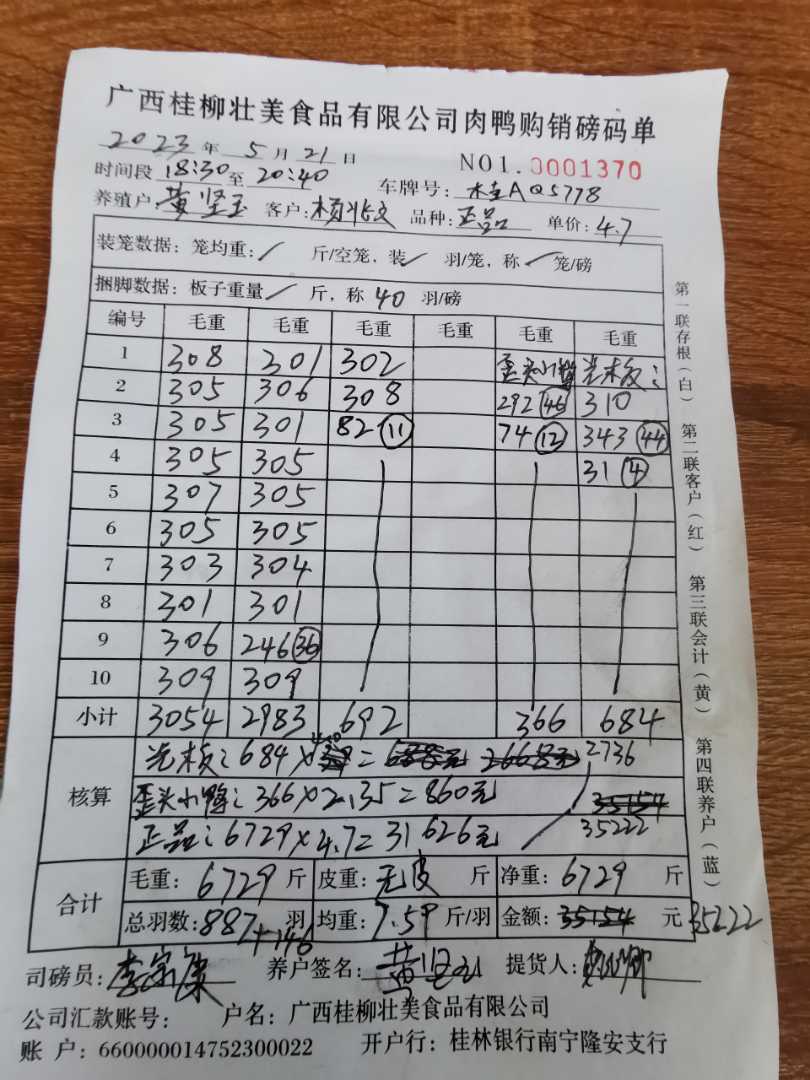 广西桂柳壮美食品有限公司肉鸭购销磅码单
2023年5月21日 NO1.0001370
时间段18:30至20:40 车牌号:桂AQ5778
养殖户:黄坚玉 客户:杨兆文 品种:正品 单价:4.7
装笼数据:笼均重:/ 斤/空笼,装/ 羽/笼,称/笼/磅
捆脚数据:板子重量/斤,称40羽/磅
编号 毛重 毛重 毛重 毛重 毛重 毛重
1 308 301 302 歪头小鸭 光板:
2 305 306 308 292(46) 310
3 305 301 82(11) 74(12) 343(44)
4 305 305 31(4)
5 307 305
6 305 305
7 303 304
8 301 301
9 306 246(36)
10 309 309
小计 3054 2983 692 366 684
核算 光板:684× = 2736
歪头小鸭:366×2.35=860元
正品:6729×4.7=31626元 35222
合计 毛重:6729斤 皮重:无皮 斤 净重:6729 斤
总羽数:887羽 均重:7.59斤/羽 金额:35154 元 35222
+146
司磅员:李 养户签名:黄坚玉 提货人:
公司汇款账号: 户名:广西桂柳壮美食品有限公司
账 户:660000014752300022 开户行:桂林银行南宁隆安支行
第一联存根(白) 第二联客户(红) 第三联会计(黄) 第四联养户(蓝)